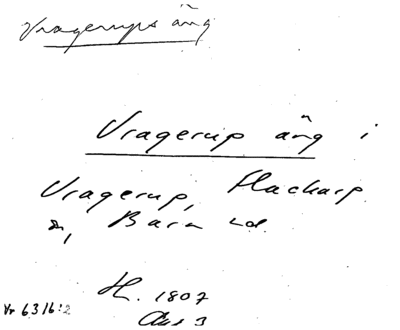 Vragerups äng
Vragerup äng i
Vragerup, Flackarp
s, Bara hd.
H. 1807
Akt 3
Vr 6316:2